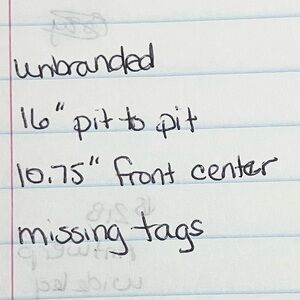 unbranded
16" pit to pit
10.75" front center
missing tags